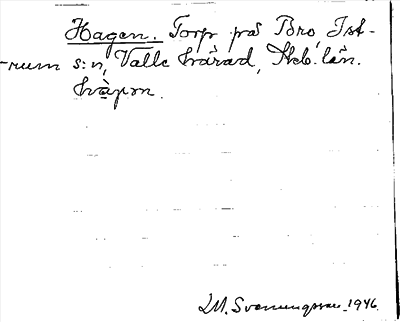 Hagen. Torp på Bro, Ist-
-rum s:n, Valle härad, Skb. län.
L M. Svenungsson. 1946.